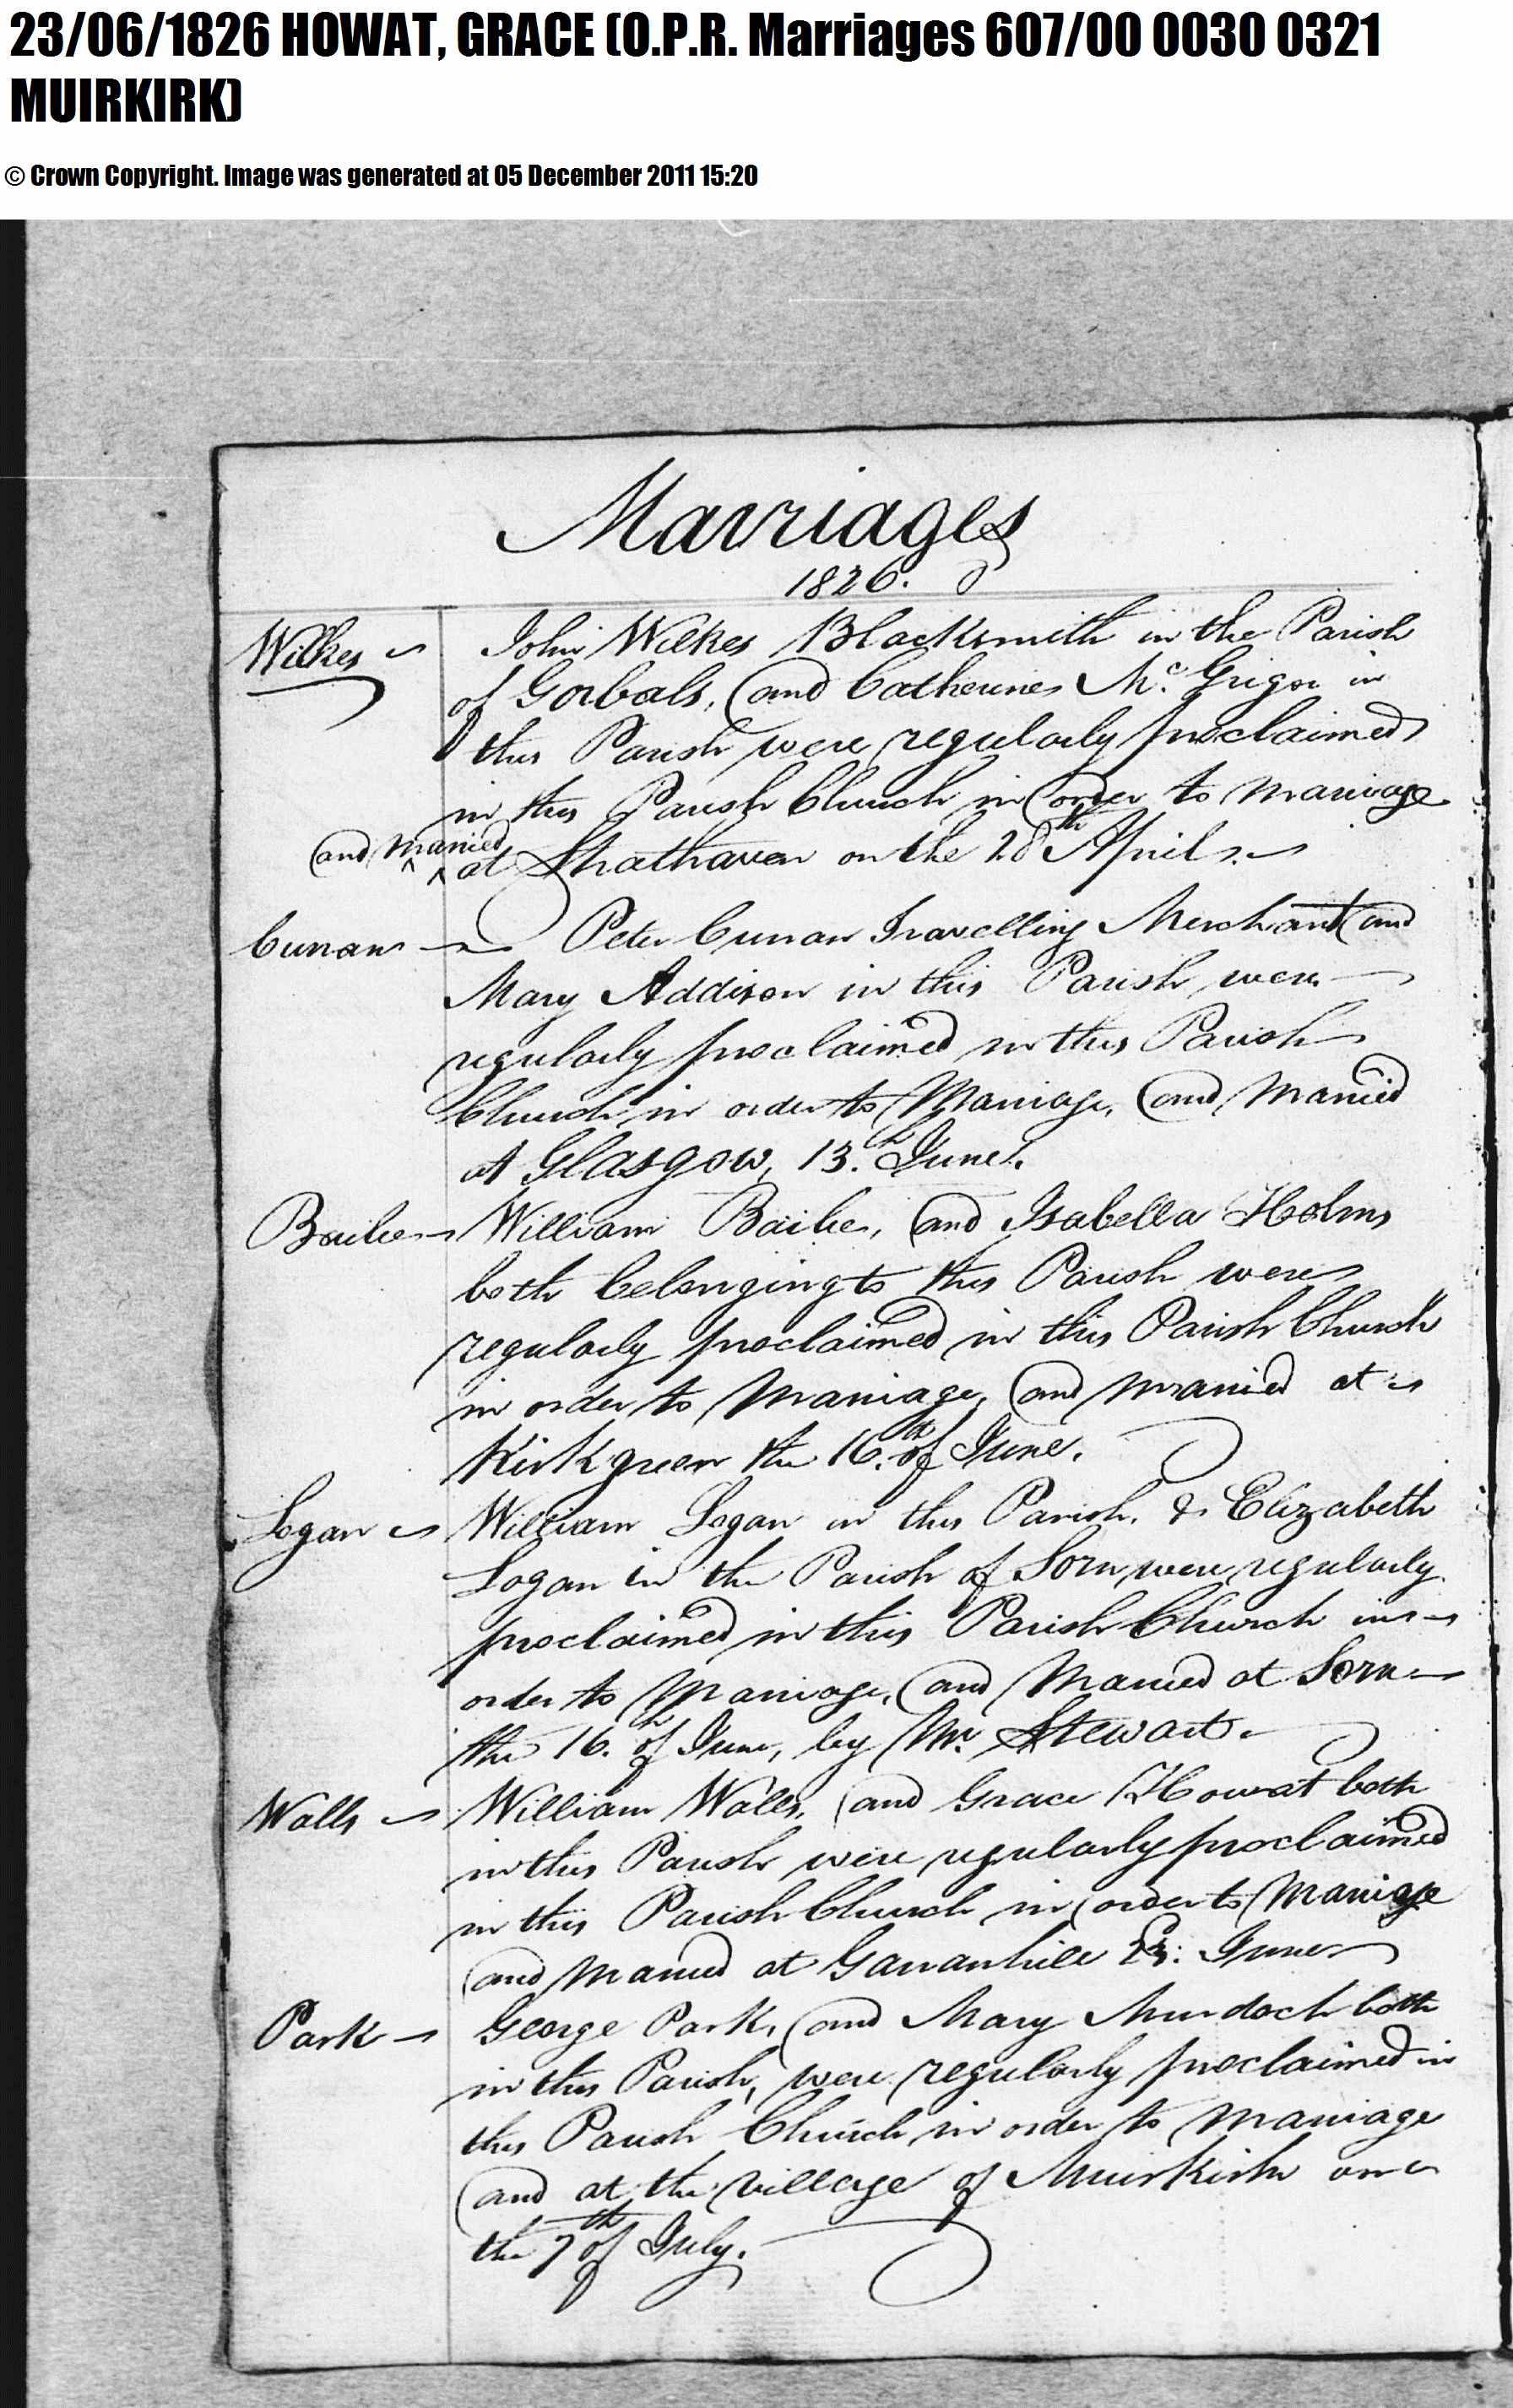 23/06/1826 HOWAT, GRACE (O.P.R. Marriages 607/00 0030 0321
MUIRKIRK)
© Crown Copyright. Image was generated at 05 December 2011 15:20
Marriages
1826.
Wilkes John Wilkes Blacksmith in the Parish
of Gorbals, and Catherine Mc.Grigor in
this Parish were regularly proclaimed
in this Parish Church in order to Marriage
and Married at Strathaven on the 28th April.
Curran Peter Curran Travelling Merchant and
Mary Addison in this Parish were
regularly proclaimed in this Parish
Church in order to Marriage, and Married
at Glasgow, 13.th June.
Bailie William Bailie, and Isabella Holms
both belonging to this Parish were
regularly proclaimed in this Parish Church
in order to Marriage, and Married at
Kirkgreen the 16.th of June.
Logan William Logan in this Parish, & Elizabeth
Logan in the Parish of Sorn were regularly
proclaimed in this Parish Church in
order to Marriage, and Married at Sorn
the 16.th of June, by Mr. Stewart.
Walls William Walls, and Grace Howat both
in this Parish were regularly proclaimed
in this Parish Church in order to Marriage
and Married at Garranhill 23: June
Park George Park, and Mary Murdoch both
in this Parish, were regularly proclaimed in
this Parish Church in order to Marriage
and at the village of Muirkirk on
the 7th of July.